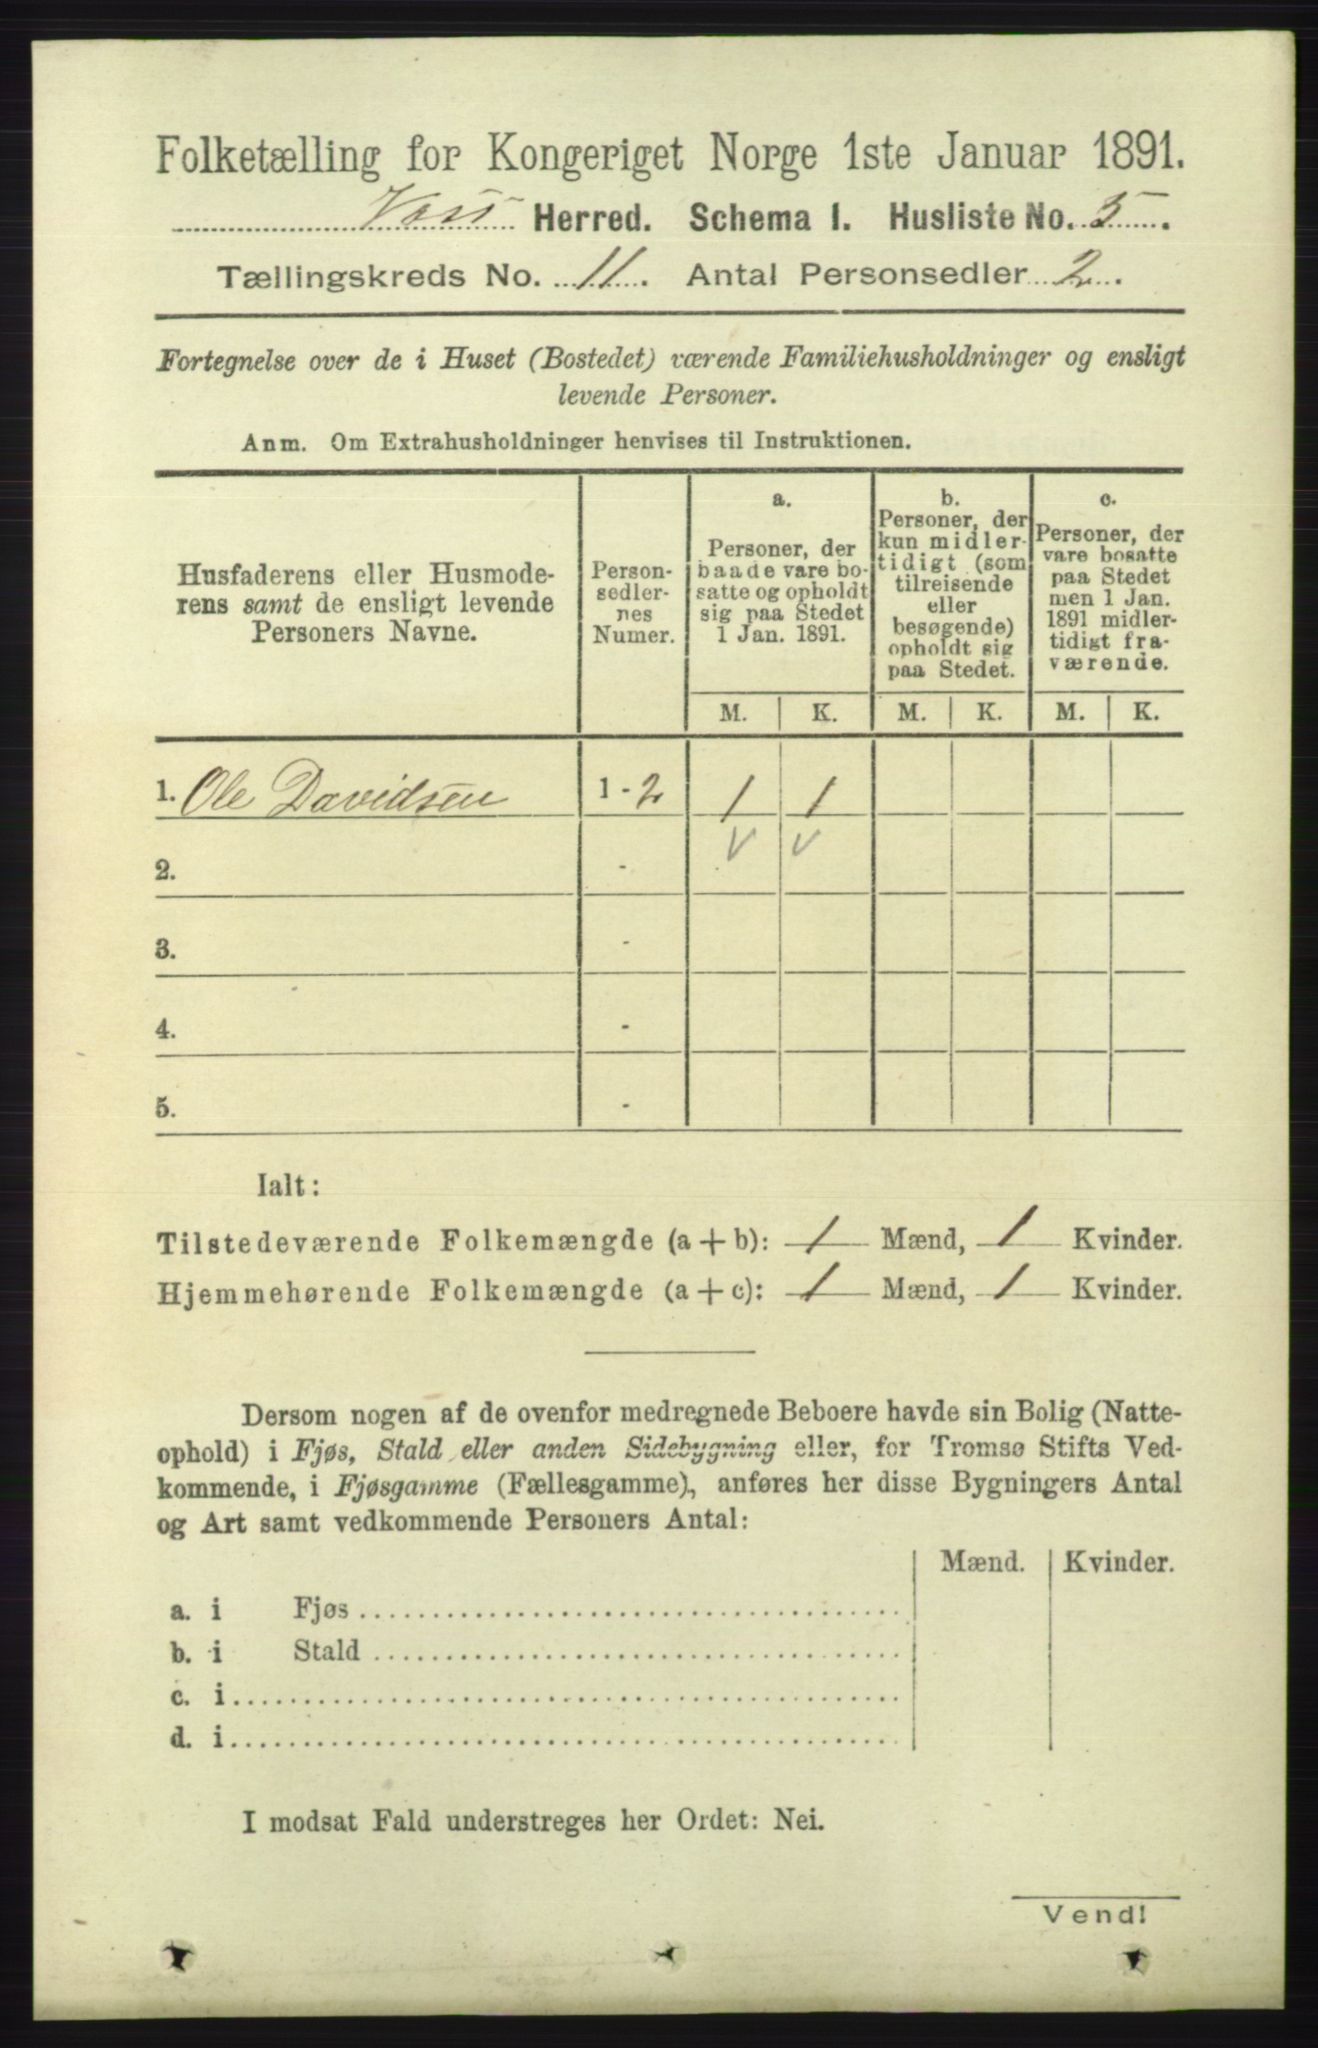 Folketælling for Kongeriget Norge 1ste Januar 1891.
Voss Herred. Schema 1. Husliste No. 5.
Tællingskreds No. 11. Antal Personsedler 2.
Fortegnelse over de i Huset (Bostedet) værende Familiehusholdninger og ensligt
levende Personer.
Anm. Om Extrahusholdninger henvises til Instruktionen.
Husfaderens eller Husmode-
rens samt de ensligt levende
Personers Navne.
Person-
sedler-
nes
Numer.
a.
Personer, der
baade vare bo-
satte og opholdt
sig paa Stedet
1 Jan. 1891.
b.
Personer, der
kun midler-
tidigt (som
tilreisende
eller
besøgende)
opholdt sig
paa Stedet.
c.
Personer, der
vare bosatte
paa Stedet
men 1 Jan.
1891 midler-
tidigt fra-
værende.
M. K. M. K. M. K.
1. Ole Davidsen 1 - 2 1 1
2. -
3. -
4. -
5. -
Ialt:
Tilstedeværende Folkemængde (a + b): 1 Mænd, 1 Kvinder.
Hjemmehørende Folkemængde (a + c): 1 Mænd, 1 Kvinder.
Dersom nogen af de ovenfor medregnede Beboere havde sin Bolig (Natte-
ophold) i Fjøs, Stald eller anden Sidebygning eller, for Tromsø Stifts Ved-
kommende, i Fjøsgamme (Fællesgamme), anføres her disse Bygningers Antal
og Art samt vedkommende Personers Antal:
Mænd. Kvinder.
a. i Fjøs
b. i Stald
c. i
d. i
I modsat Fald understreges her Ordet: Nei.
Vend!